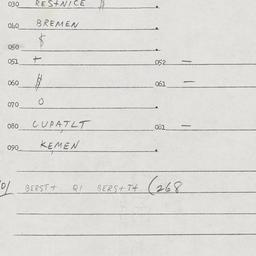 030 RESTNICE $
040 BREMEN
050 $
051 + 052 —
060 $ 061 —
070 O
080 CUPATLT 081 —
090 KEMEN
BERST+ Q1 BERST T+ (268